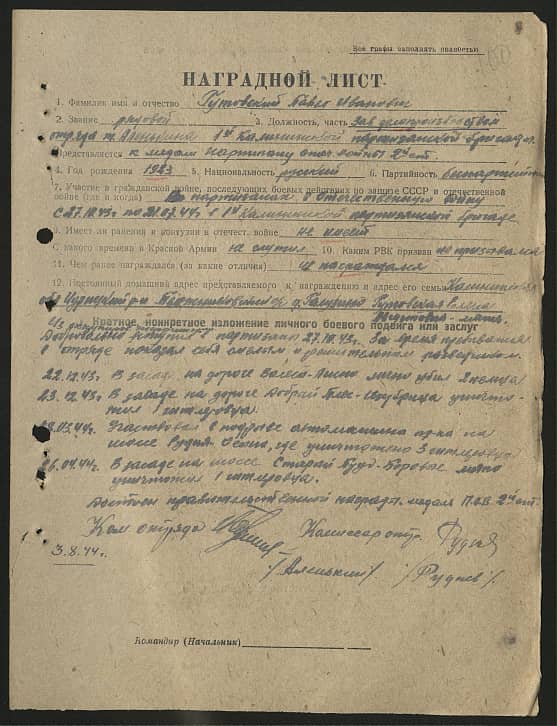 Все графы заполнять полностью
НАГРАДНОЙ ЛИСТ
1. Фамилия имя и отчество Гутовский Павел Иванович
2. Звание рядовой 3. Должность, часть Зав делопроизводством
отряда т. 1й Калининской партизанской бригады.
Представляется к медали партизану отеч. войны 2й ст.
4. Год рождения 1923 5. Национальность русский 6. Партийность беспартийный
7. Участие в гражданской войне, последующих боевых действиях по защите СССР и отечественной
войне (где и когда) В партизанах в отечественную войну
с 27.10.43г. по 1й Калининской партизанской бригаде
8. Имеет ли ранения и контузии в отечест. войне не имеет
9. С какого времени в Красной Армии не служил 10. Каким РВК призван не призывался
11. Чем ранее награждался (за какие отличия) не награждался
12. Постоянный домашний адрес представляемого к награждению и адрес его семьи Калининская
обл. р-н д. Гутовская Елена
мать
Краткое, конкретное изложение личного боевого подвига или заслуг
Добровольно вступил в партизаны 27.10.43г. За время пребывания
в отряде показал себя смелым и решительным разведчиком.
22.12.43г. В засаде на дороге лично убил 2 немца
23.12.43г. В засаде на дороге уничто-
жил 1 гитлеровца.
03.44г. Участвовал в подрыве автомашины пр-ка на
шоссе Рудня - где уничтожено 3 гитлеровца
26.04.44г. В засаде на шоссе Старая Буда - Боровое лично
уничтожил 1 гитлеровца.
Достоин правительственной награды медаля П.О.В. 2й ст.
Ком отряда Комиссар отр.
3.8.44г. /Руднев/.
Командир (Начальник)